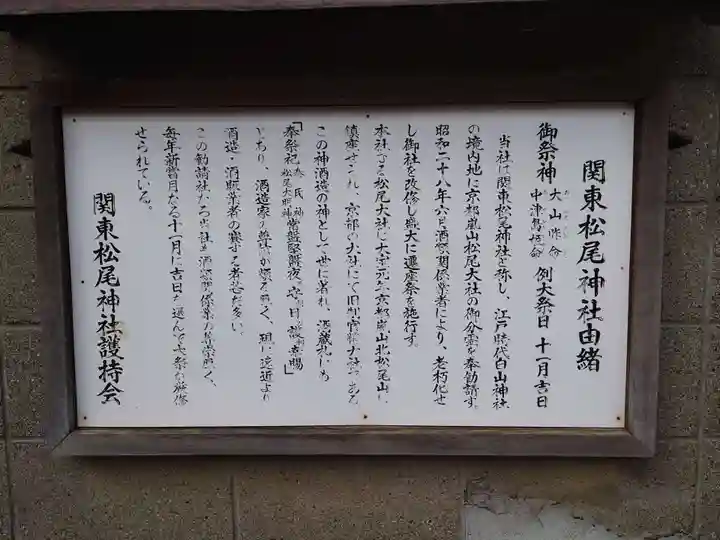 関東松尾神社由緒
御祭神 大山咋命 例大祭日 十一月吉日
中津島姫命
当社は関東松尾神社と称し、江戸時代白山神社
の境内地に京都嵐山松尾大社の御分霊を奉勧請す。
昭和二十八年六月酒類関係業者により、老朽化せ
し御社を改修し盛大に遷座祭を施行す。
本社である松尾大社は大宝元年京都嵐山北松尾山に
鎮座せられ、京都の大社にて旧制官幣大社である
この神酒造の神として世に著れ、酒蔵札にも
「奉祭祀 秦氏神 松尾大明神 常盤堅磐夜 日 護 幸賜」
とあり、酒造家の 家が 深く、現に遠近より
酒造・酒販業者の賽する者甚だ多い。
この勧請社たる当社も酒類関係業の 崇厚く、
毎年新嘗月なる十一月に吉日を選んで大祭が施修
せられている。
関東松尾神社護持会